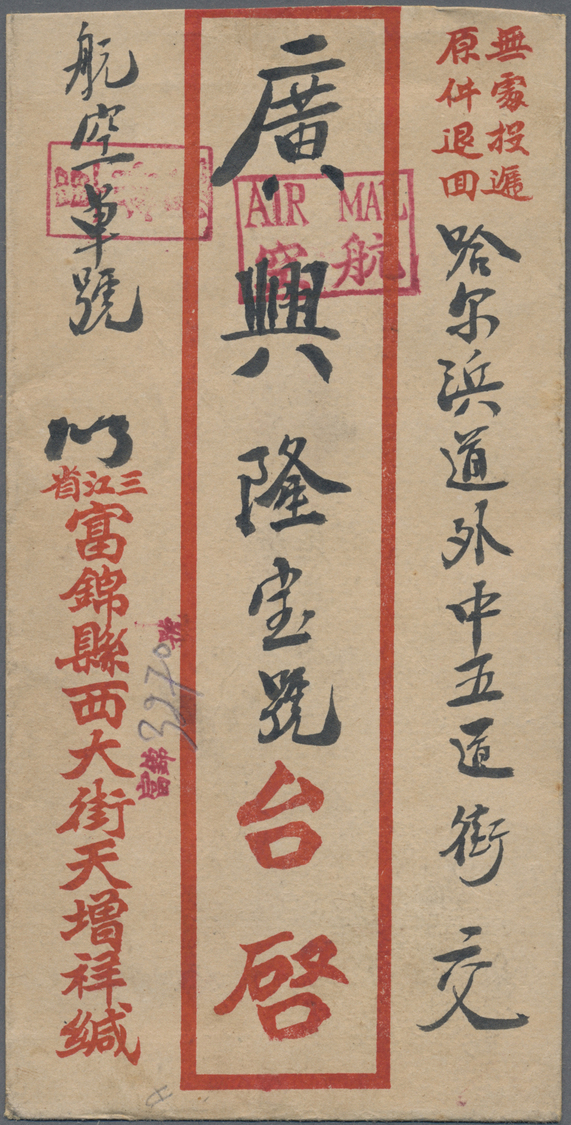 無處投遞
原件退回
哈尔浜道外中五道街 交
廣興隆宝號台啓
AIR MAIL
航空
航空单號
三江省
富錦縣西大街天增祥緘
3270